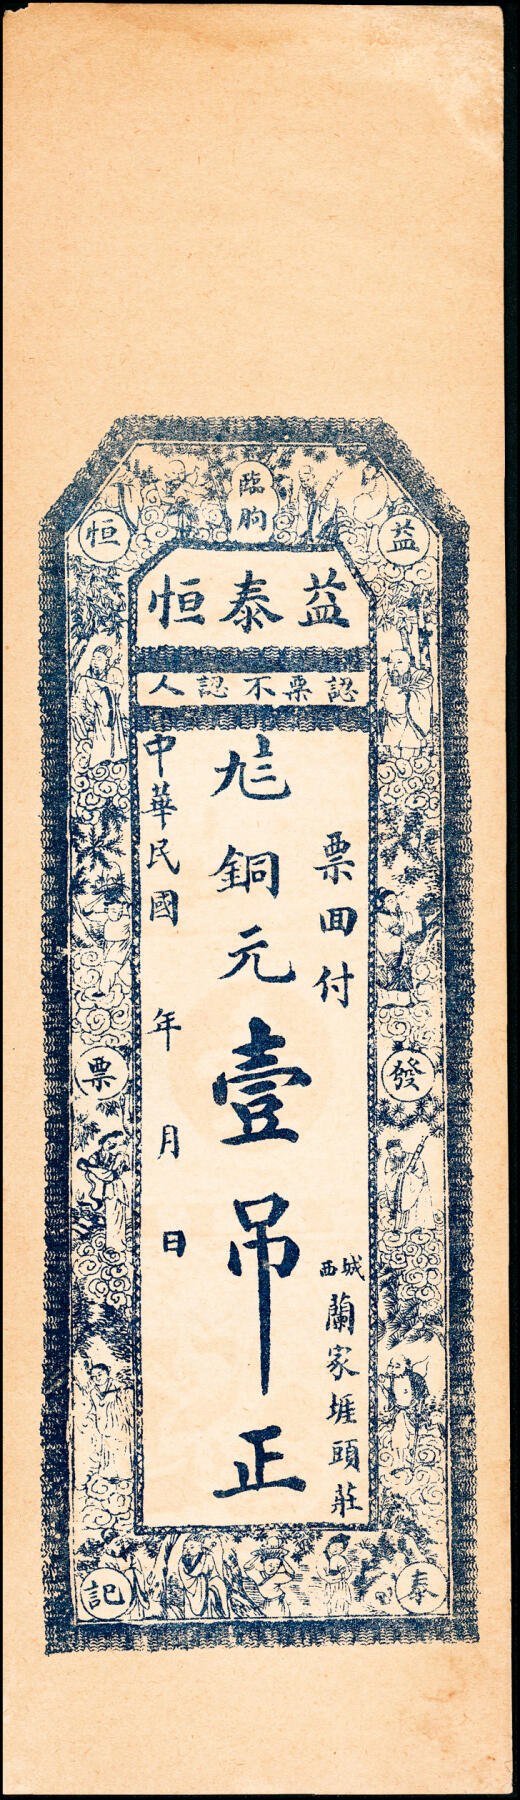 臨朐
益
恒
益泰恒
認票不認人
票回付
城西
蘭家堐頭莊
銅元壹吊正
中華民國 年 月 日
發
票
泰
記